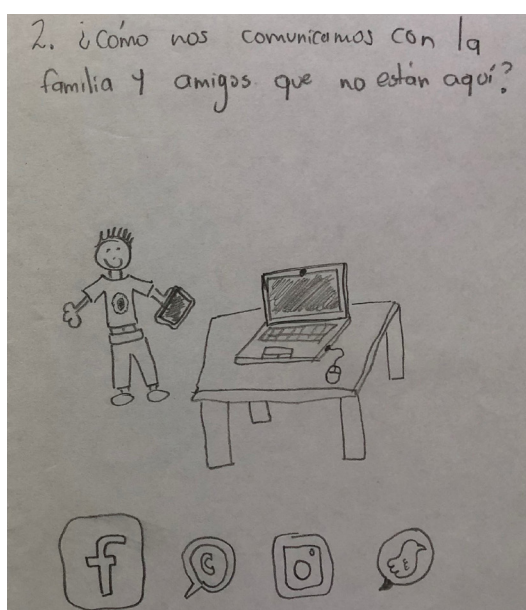 2. ¿Cómo nos comunicamos con la
familia y amigos que no están aquí?
f